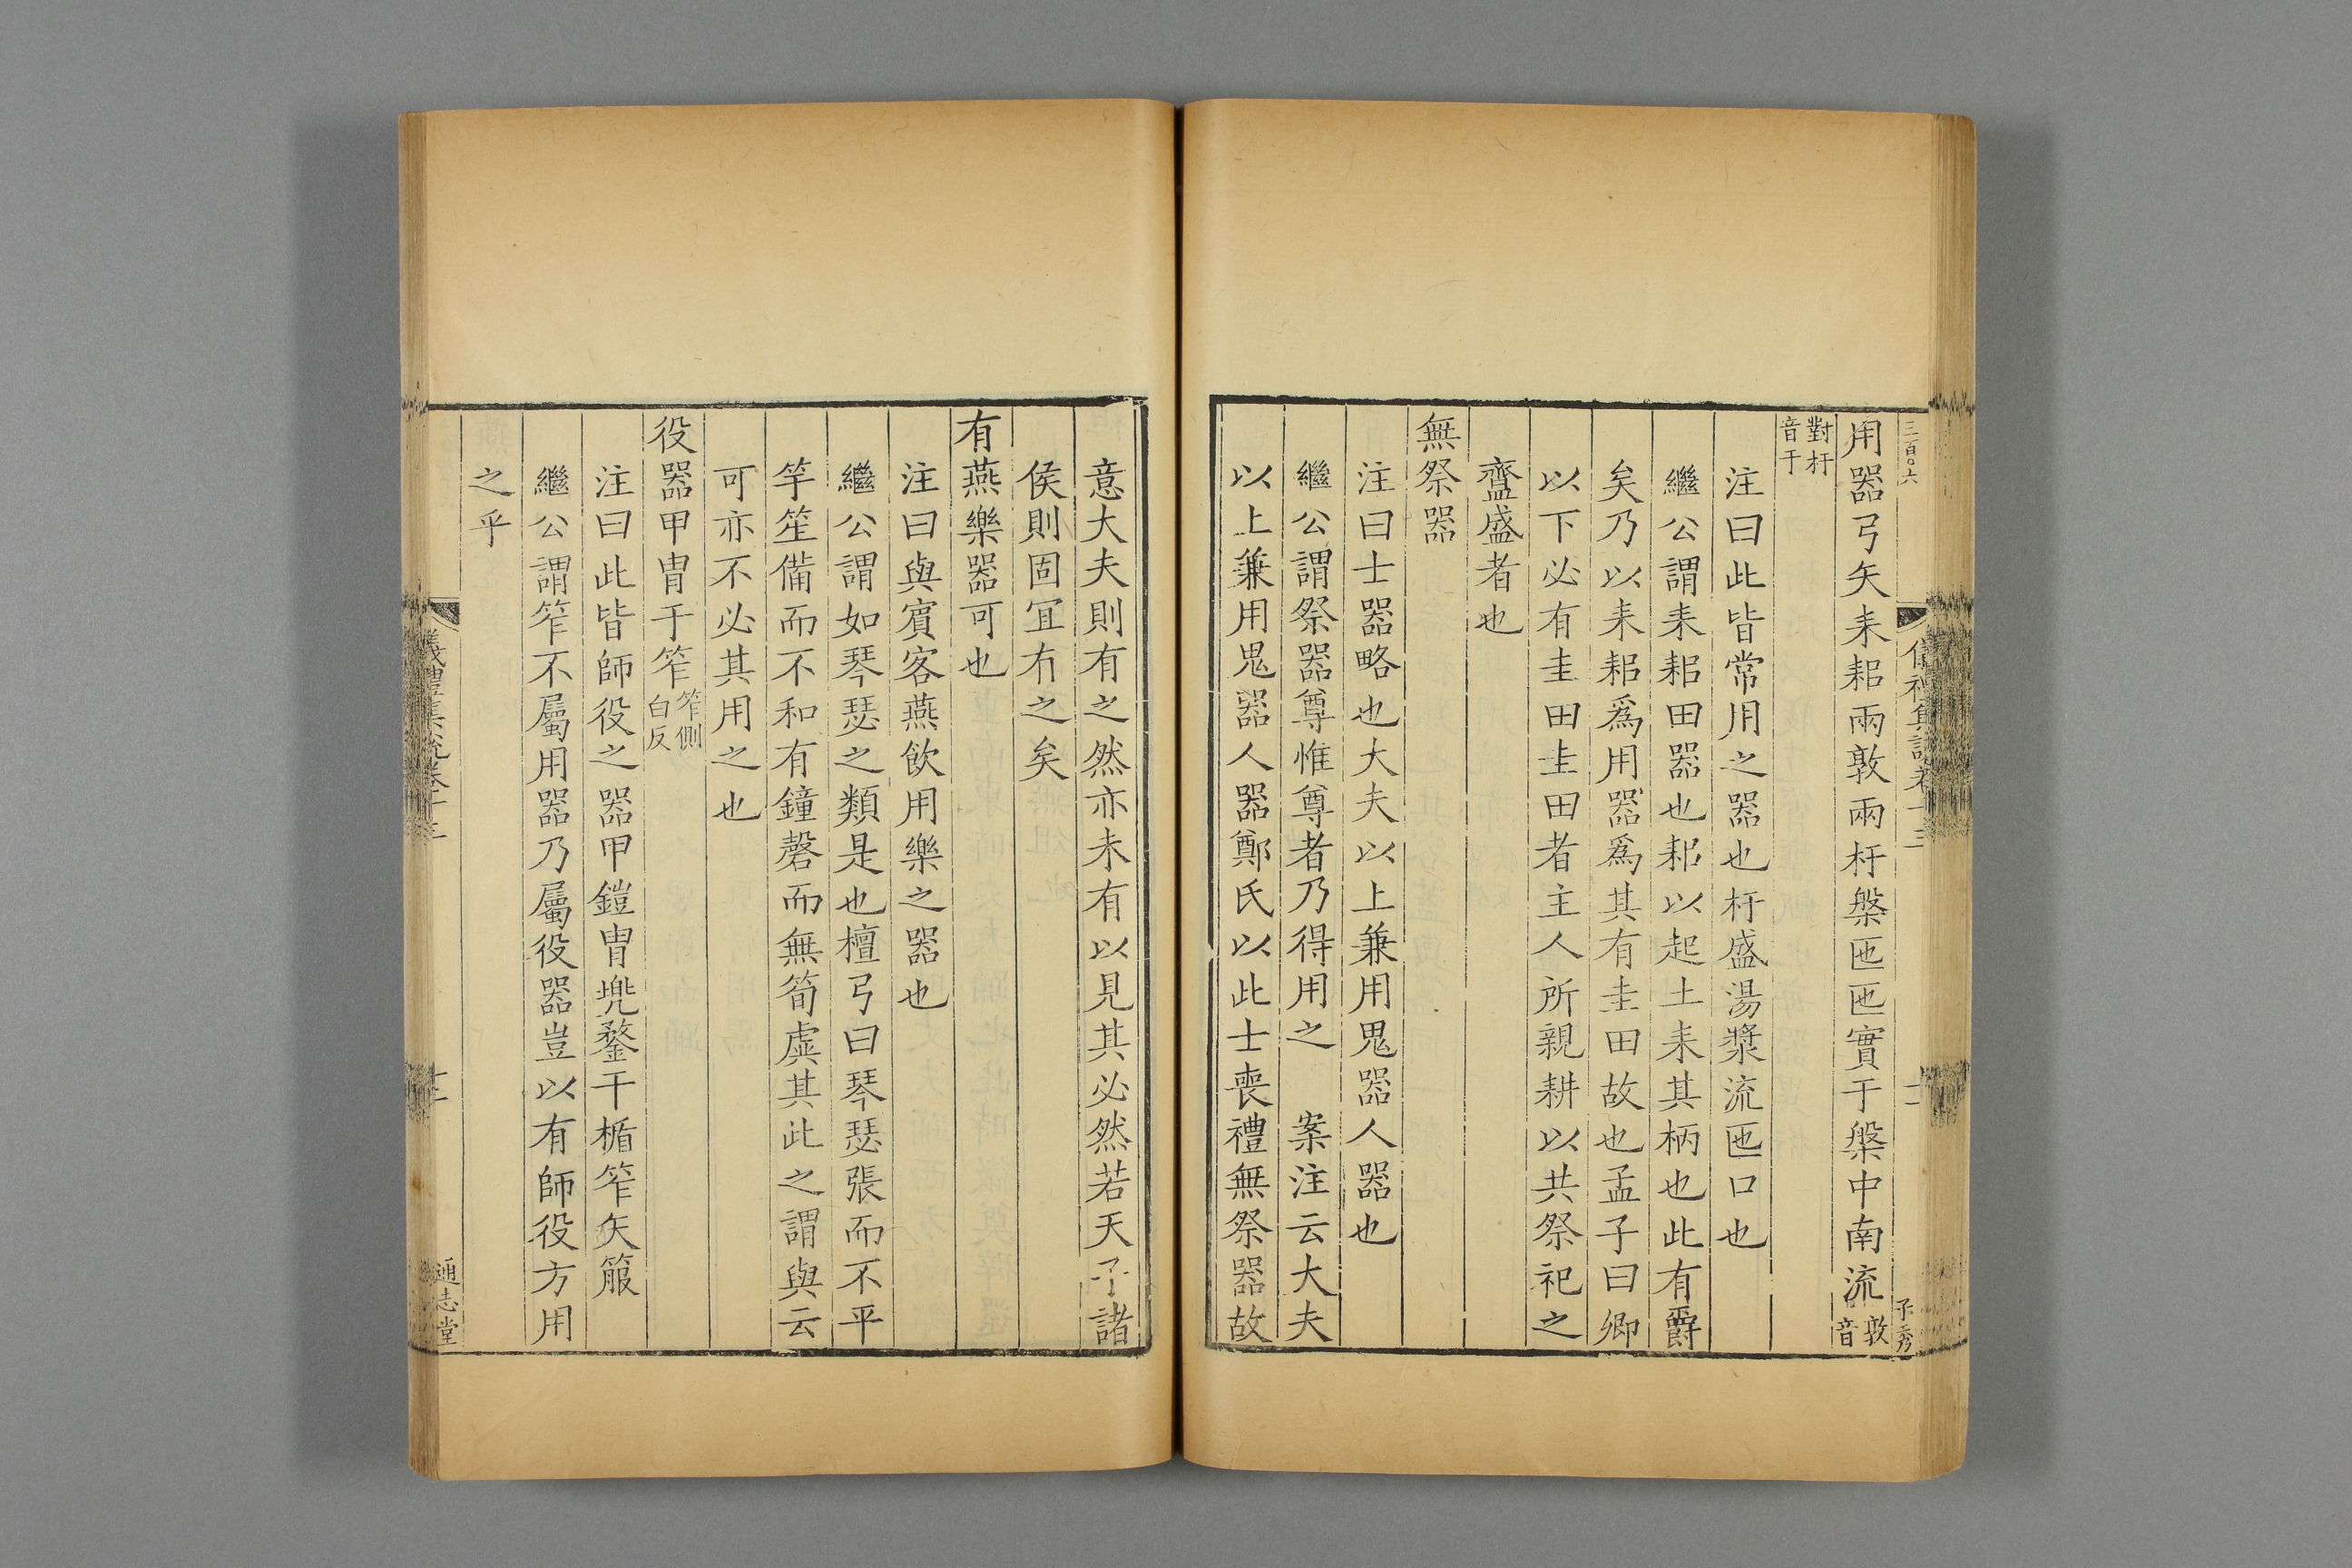 三百〇六
儀禮集說卷十三
十一
子秀
用器弓矢耒耜兩敦兩杅槃匜匜實于槃中南流敦音
對杅音于
注曰此皆常用之器也杅盛湯漿流匜口也
繼公謂耒耜田器也耜以起土耒其柄也此有爵
矣乃以耒耜爲用器爲其有圭田故也孟子曰卿
以下必有圭田圭田者主人所親耕以共祭祀之
齍盛者也
無祭器
注曰士器略也大夫以上兼用鬼器人器也
繼公謂祭器尊惟尊者乃得用之 案注云大夫
以上兼用鬼器人器鄭氏以此士喪禮無祭器故
意大夫則有之然亦未有以見其必然若天子諸
侯則固冝有之矣
有燕樂器可也
注曰與賓客燕飲用樂之器也
繼公謂如琴瑟之類是也檀弓曰琴瑟張而不平
竽笙備而不和有鐘磬而無筍虡其此之謂與云
可亦不必其用之也
役器甲冑干笮笮側白反
注曰此皆師役之器甲鎧冑兠鍪干楯笮矢箙
繼公謂笮不屬用器乃屬役器豈以有師役方用
之乎
儀禮集說卷十三
十二
通志堂